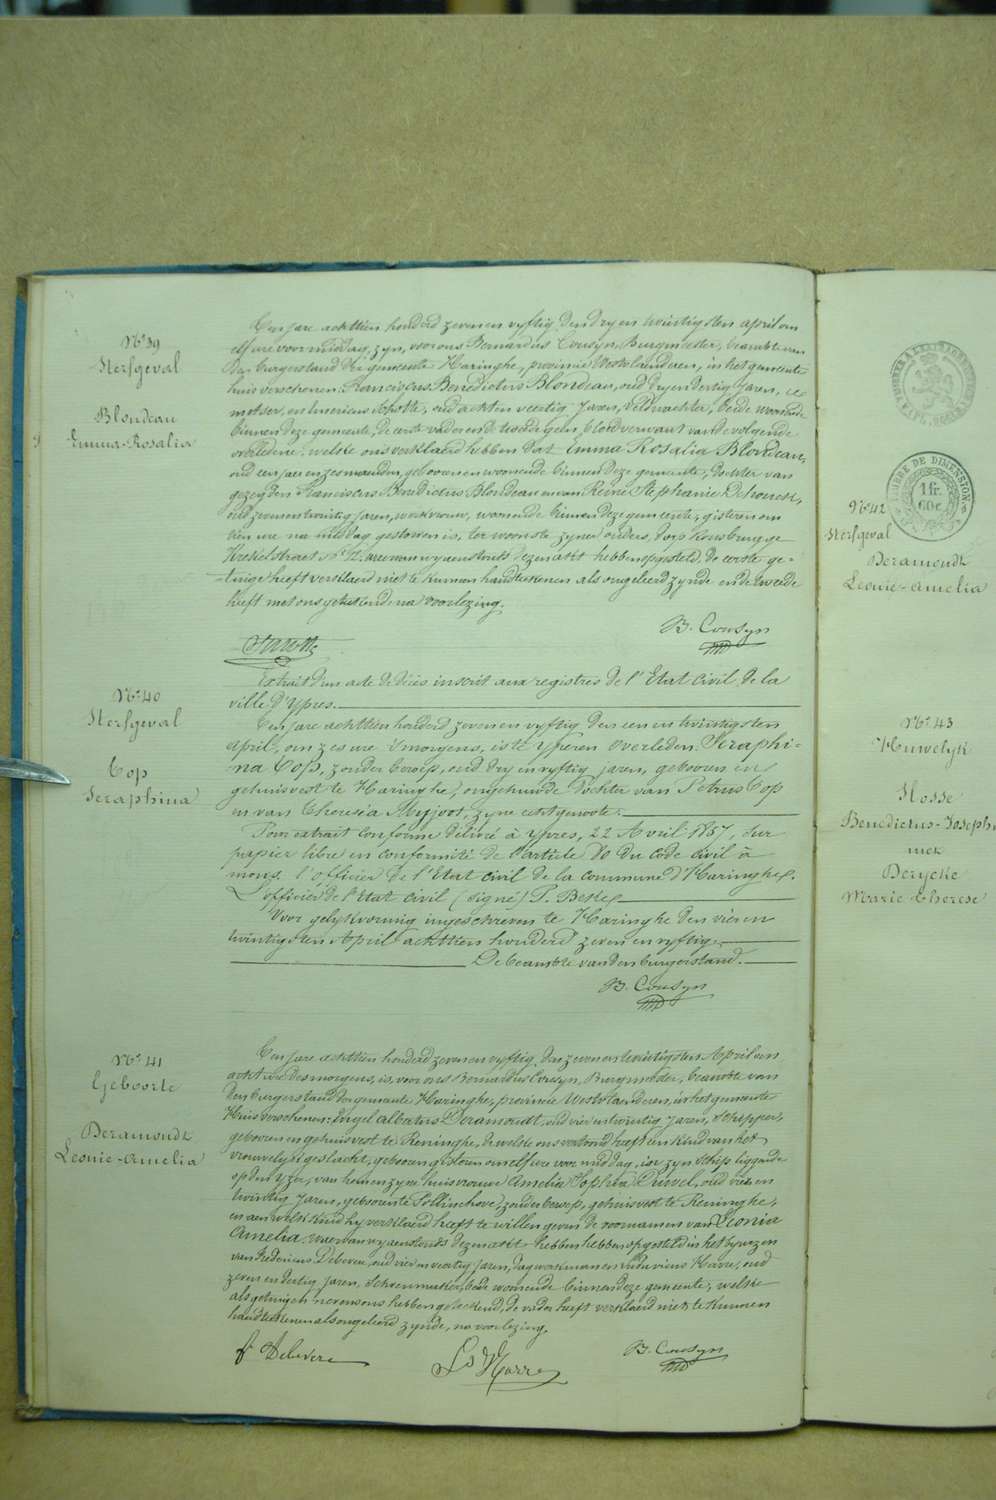 N° 39
Sterfgeval
Blondeau
Emma-Rosalia
Een jare achttien honderd zeven en vyftig den dry en twintigsten april om
elf ure voor middag, zyn, voor ons Bernardus Cousyn, Burgmeester, beambte van
den burgerstand der gemeente Haringhe, provincie Westvlaenderen, in het gemeente
huis verschenen Franciscus Benedictus Blondeau, oud dry en dertig jaren,
metser, en Amerieus oud acht en veertig jaren, veldwachter, beide woonende
binnen deze gemeente, de eerste vader en de tweede geen bloedverwant van de volgende
overledene, welke ons verklaerd hebben dat Emma Rosalia Blondeau,
oud een jaer en zes maenden, geboren en woonende binnen deze gemeente, dochter van
gezegden Franciscus Benedictus Blondeau en van Reine Stephanie
oud zeven en twintig jaren, werkvrouw, woonende binnen deze gemeente, gisteren om
tien ure na middag gestorven is, ter woonste zyner ouders, dorp Rousbrugge
Krekelstraet n° 12. waervan wy aenstonds dezen akt hebben opgesteld. de eerste ge-
tuige heeft verklaerd niet te kunnen handteekenen als ongeleerd zynde en de tweede
heeft met ons geteekend na voorlezing.
B. Cousyn
N° 40
Sterfgeval
Cop
Seraphina
Extrait d'un acte de décès inscrit aux registres de l'Etat Civil de la
ville d'Ypres.
Een jare achttien honderd zeven en vyftig den een en twintigsten
April, om zes ure 's morgens, is te Yperen overleden Seraphi-
na Cops, zonder beroep, oud dry en vyftig jaren, geboren en
gehuisvest te Haringhe, ongehuwde dochter van Petrus Cop
en van Theresia Myjoot, zyne echtgenoote.
Pour extrait conforme délivré à Ypres, 22 Avril 1857, sur
papier libre en conformité de l'article 80 du code civil à
mons. l'officier de l'Etat civil de la commune d'Haringhe.
L'officier de l'Etat civil (signé) P. Beske
Voor gelykvormig ingeschreven te Haringhe den vier en
twintigsten April achttien honderd zeven en vyftig.
De beambte van den burgerstand.
B. Cousyn
N° 41
Geboorte
Deramoudt
Leonie-Amelia
Een jare achttien honderd zeven en vyftig, den zeven en twintigsten April om
acht ure des morgens, is, voor ons Bernardus Cousyn, Burgmeester, beambte van
den burgerstand der gemeente Haringhe, provincie Westvlaenderen, in het gemeente
Huis verschenen Engel Albertus Deramoudt, oud vier en twintig jaren, schipper,
geboren en gehuisvest te Reninghe, de welke ons vertoond heeft een kind van het
vrouwelyk geslacht, geboren gisteren om elf ure voor middag, in zyn schip liggende
op den Yzer, van hem en zyne huisvrouw Amelia Sophia Druwel, oud vier en
twintig jaren, geboren te Pollinchove, zonder beroep, gehuisvest te Reninghe,
en aen welk kind hy verklaerd heeft te willen geven de voornamen van Leonia
Amelia. waervan wy aenstonds dezen akt hebben hebben opgesteld in het bywezen
van Fredericus Debeven, oud vier en veertig jaren, dagwerkman en Ludovicus Herre, oud
zeven en dertig jaren, Schoenmaeker, beide woonende binnen deze gemeente, welke
als getuigen nevens ons hebben geteekend, de vader heeft verklaerd niet te kunnen
handteekenen als ongeleerd zynde, na voorlezing.
B. Cousyn
TIMBRE DE DIMENSION
1 fr.
60c.
N° 42
Sterfgeval
Deramoudt
Leonie-Amelia
N° 43
Huwelyk
Hosse
Benedictus-Joseph
met
Derycke
Marie Therese